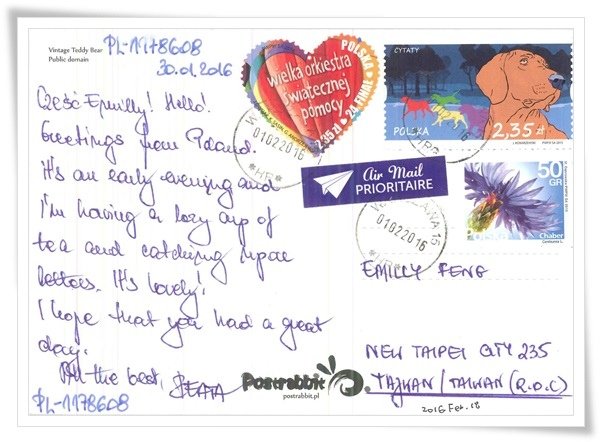 Vintage Teddy Bear
Public domain
PL-1178608
30.01.2016
Cześć Emilly! Hello!
Greetings from Poland.
It's an early evening and
I'm having a cozy cup of
tea and catching up on
letters. It's lovely!
I hope that you had a great
day.
All the best, BEATA
PL-1178608
POLSKA
wielka orkiestra
świątecznej
pomocy
2,35 zł
24 FINAŁ
01022016
CYTATY
POLSKA
2,35 zł
Air Mail
PRIORITAIRE
50
GR
POLSKA
Chaber
01022016
EMILLY FENG
NEW TAIPEI CITY 235
TAJWAN/TAIWAN (R.O.C)
2016 Feb. 18
Postrabbit
postrabbit.pl